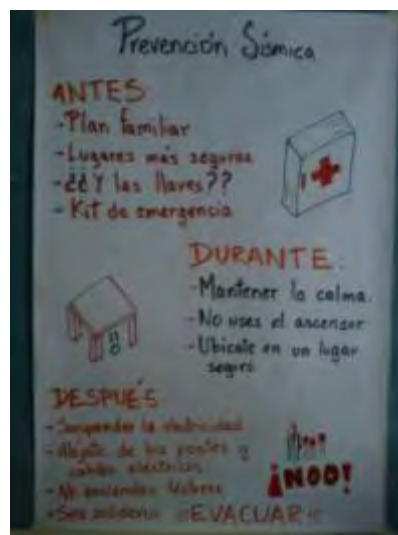 Prevención Sísmica
ANTES
- Plan familiar
- Lugares más seguros
- ¿¿Y las llaves??
- Kit de emergencia
DURANTE.
- Mantener la calma.
- No uses el ascensor
- Ubicate en un lugar
seguro
DESPUÉS
- la electricidad
- Aléjate de los postes y
cables eléctricos
- No enciendas
- Sea solidario ¡¡EVACUAR!!
¡NOO!